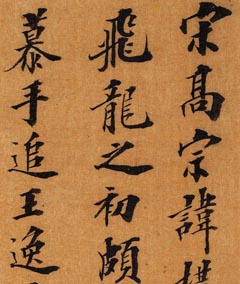 宋髙宗諱構
飛龍之初頗
慕手追王逸